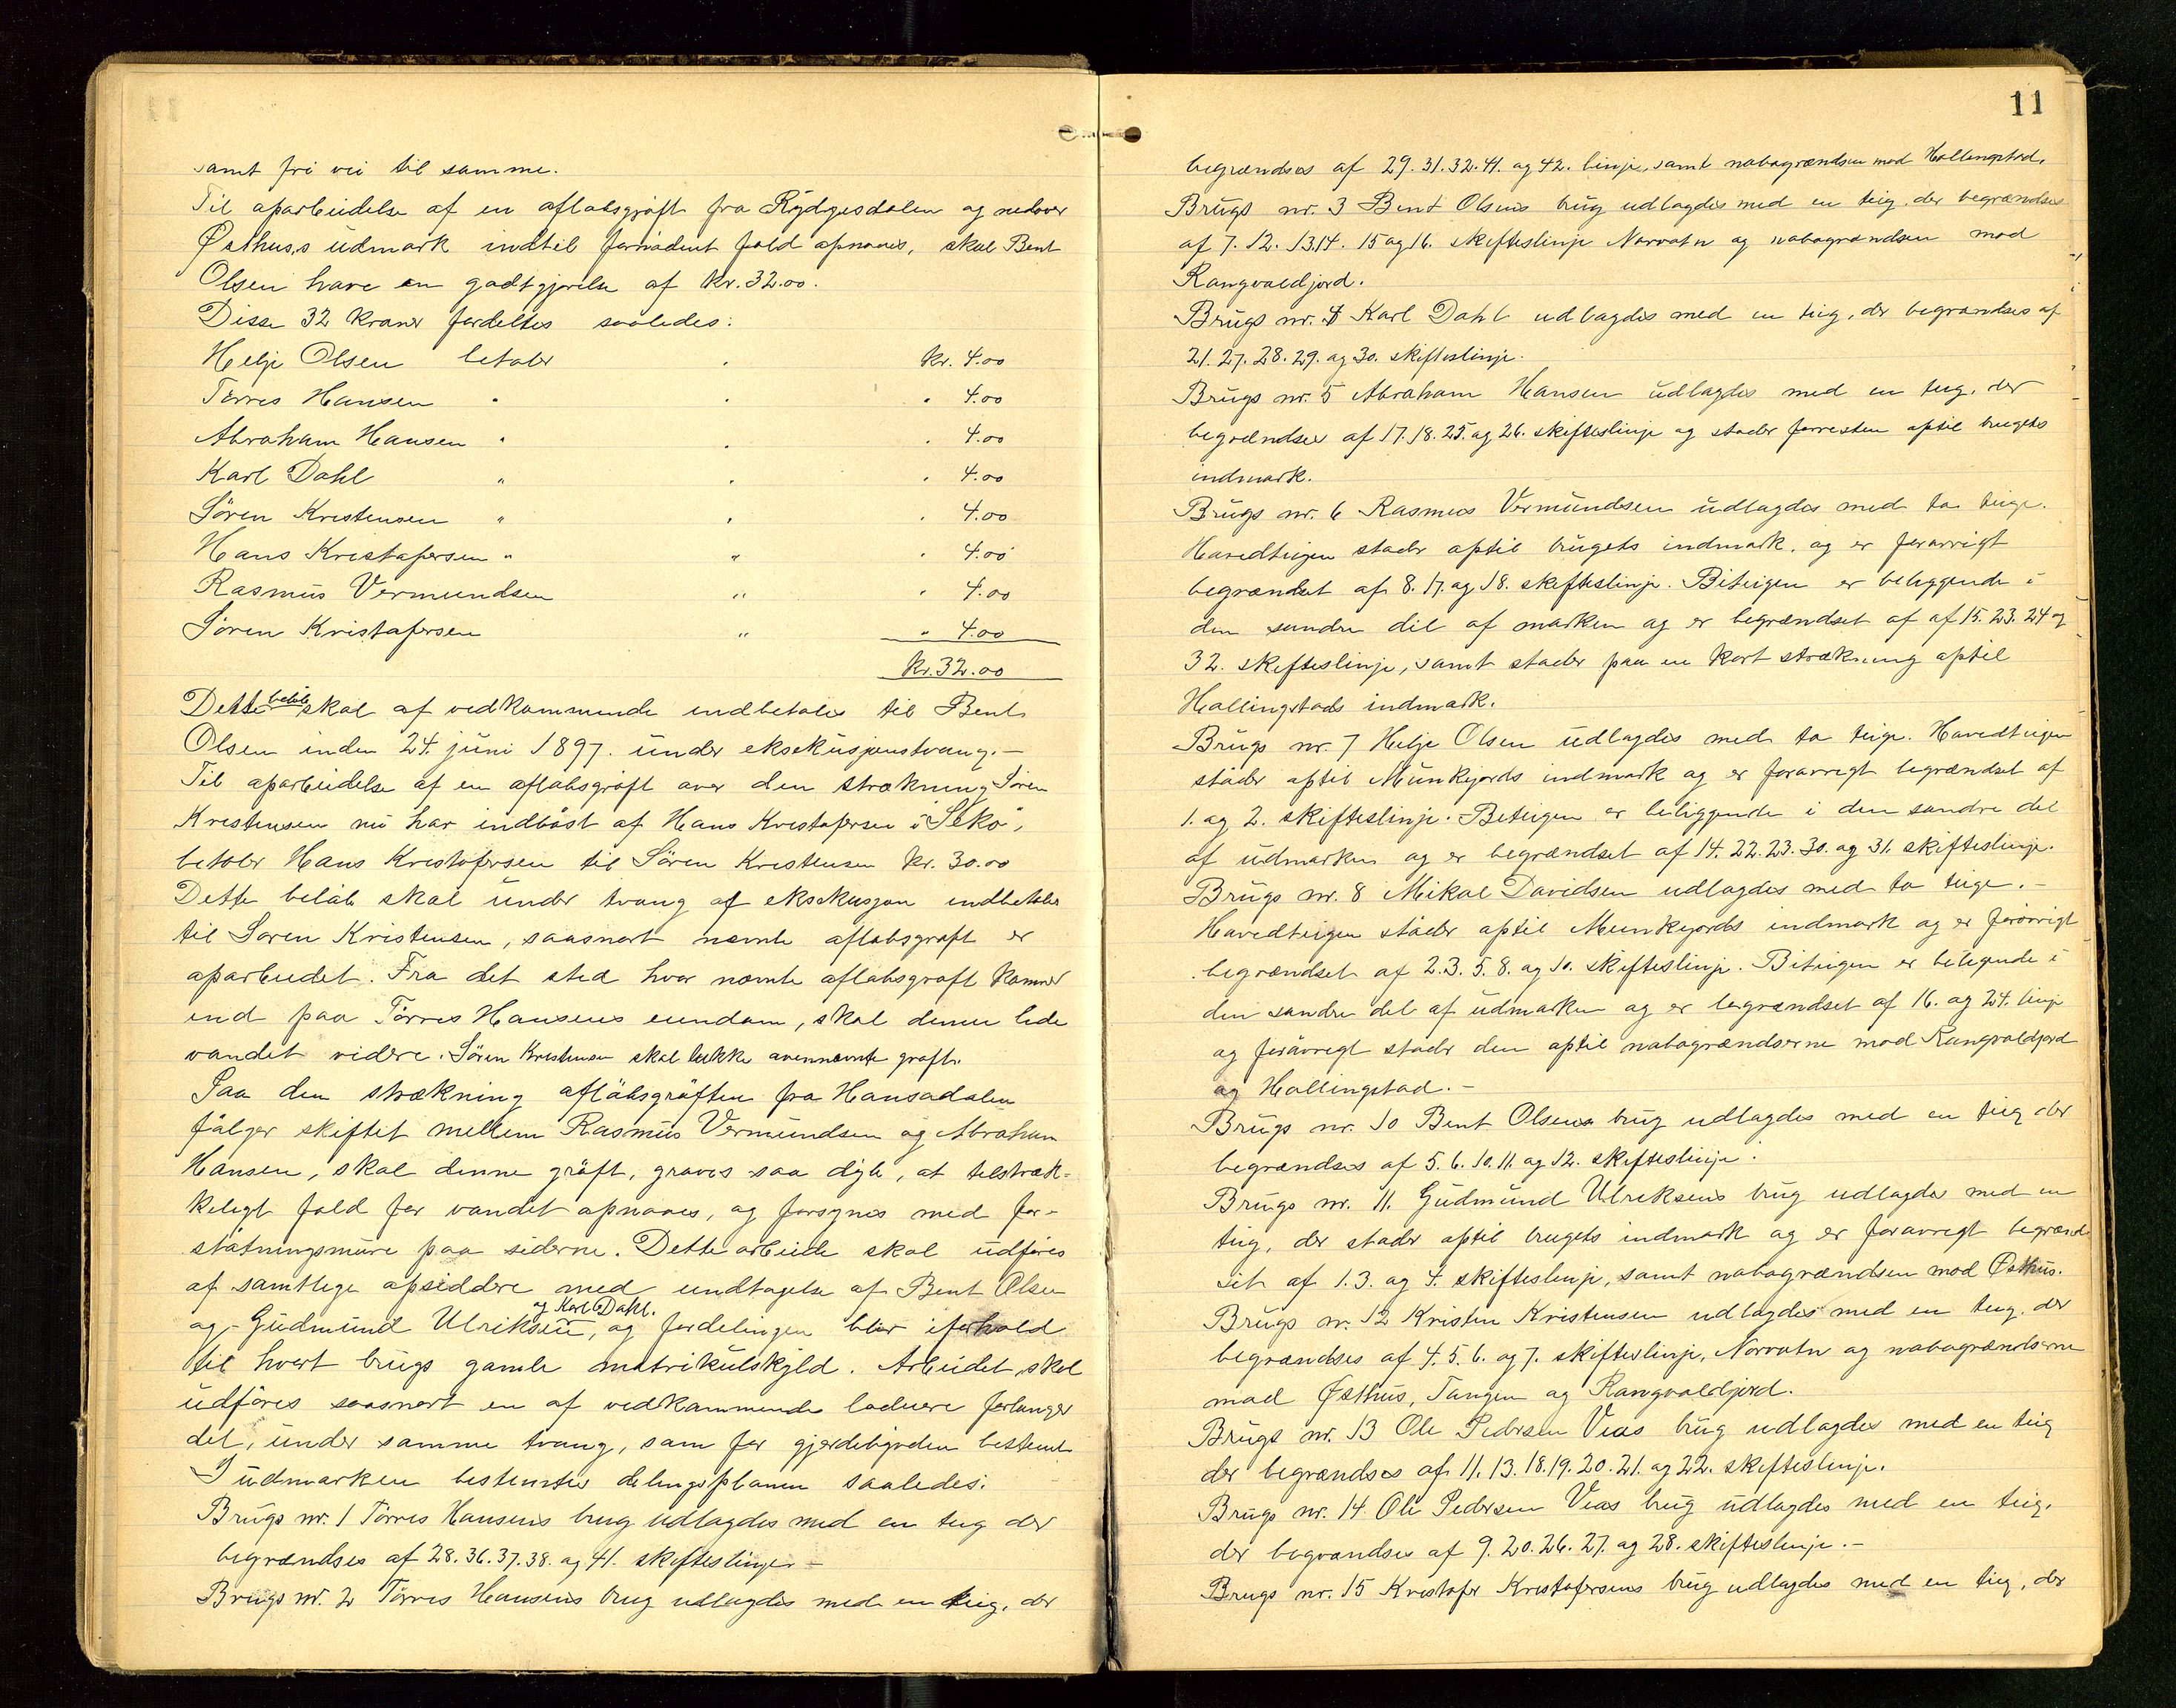 samt fri vei til samme.
Til oparbeidelse af en afløbsgrøft fra Rydgesdalen og nedover
Østhus,s udmark indtil fornødent fald opnaaes, skal Bent
Olsen have en godtgjørelse af kr. 32.00.
Disse 32 kroner fordeltes saaledes:
Helje Olsen betaler kr. 4.00
Törres Hansen " " " 4.00
Abraham Hansen " " " 4.00
Karl Dahl " " " 4.00
Sören Kristensen " " " 4.00
Hans Kristofersen " " " 4.00
Rasmus Vermundsen " " 4.00
Sören Kristofersen " " 4.00
kr. 32.00
Dette beløb skal af vedkommende indbetales til Bent
Olsen inden 24. juni 1897. under eksekusjonstvang.-
Til oparbeidelse af en afløbsgrøft over den strækning Sören
Kristensen nu har indbøst af Hans Kristofersen i "Seko",
betaler Hans Kristofersen til Sören Kristensen kr. 30.00
Dette beløb skal under tvang af eksekusjon indbetales
til Sören Kristensen, saasnart nævnte afløbsgrøft er
oparbeidet. Fra det sted hvor nævnte afløbsgrøft kommer
ind paa Törres Hansens eiendom, skal denne lede
vandet videre. Sören Kristensen skal lukke ovennævnte grøft.
Paa den strækning afløbsgrøften fra Hansadalen
følger skiftet mellem Rasmus Vermundsen og Abraham
Hansen, skal denne grøft, graves saa dybt, at tilstræk-
keligt fald for vandet opnaaes, og forsynes med for-
støtningsmure paa siderne. Dette arbeide skal udføres
af samtlige opsiddere med undtagelse af Bent Olsen
og Karl Dahl.
og Gudmund Ulriksen, og fordelingen bliver iforhold
til hvert brugs gamle matrikulskyld. Arbeidet skal
udføres saasnart en af vedkommende lodeiere forlanger
det, under samme tvang, som for gjerdebyrden bestemt.
I udmarken bestemtes delingsplanen saaledes:
Brugs nr. 1 Törres Hansens brug udlagdes med en teig der
begrændses af 28. 36. 37. 38. og 41. skifteslinje.-
Brugs nr. 2 Törres Hansens brug udlagdes med en teig, der
11
begrændses af 29. 31. 32. 41. og 42. linje, samt nabogrændsen mod Hallingstad.
Brugs nr. 3 Bent Olsens brug udlagdes med en teig, der begrændses
af 7. 12. 13. 14. 15 og 16. skifteslinje Norvatn og nabogrændsen mod
Rangvaldjord.
Brugs nr. 4 Karl Dahl udlagdes med en teig, der begrændses af
21. 27. 28. 29. og 30. skifteslinje.
Brugs nr. 5 Abraham Hansen udlagdes med en teig, der
begrændses af 17. 18. 25. og 26. skifteslinje og støder forresten optil brugets
indmark.
Brugs nr. 6 Rasmus Vermundsen udlagdes med to teige.
Hovedteigen støder optil brugets indmark, og er forøvrigt
begrændset af 8. 17. og 18. skifteslinje. Biteigen er beliggende i
den søndre del af marken og er begrændset af af 15. 23. 24 og
32. skifteslinje, samt støder paa en kort strækning optil
Hallingstads indmark.
Brugs nr. 7 Helje Olsen udlagdes med to teige. Hovedteigen
støder optil Munkejords indmark og er forøvrigt begrændset af
1. og 2. skifteslinje. Beteigen er beliggende i den søndre del
af udmarken og er begrændset af 14. 22. 23. 30. og 31. skifteslinje.
Brugs nr. 8 Mikal Davidsen udlagdes med to teige.-
Hovedteigen støder optil Munkejords indmark og er forøvrigt
begrændset af 2. 3. 5. 8. og 10. skifteslinje. Biteigen er beligende i
den søndre del af udmarken og er begrændset af 16. og 24. linje
og forøvrigt støder den optil nabogrændserne mod Rangvaldjord
og Hallingstad.-
Brugs nr. 10 Bent Olsens brug udlagdes med en teig der
begrændses af 5. 6. 10. 11. og 12. skifteslinje.
Brugs nr. 11. Gudmund Ulriksens brug udlagdes med en
teig, der støder optil brugets indmark og er forøvrigt begrænd-
set af 1. 3. og 4. skifteslinje, samt nabogrændsen mod Østhus.
Brugs nr. 12 Kristen Kristensen udlagdes med en teig, der
begrændses af 4. 5. 6. og 7. skifteslinje, Norvatn og nabogrændserne
mod Østhus, Tangen og Rangvaldjord.
Brugs nr. 13 Ole Pedersen Vias brug udlagdes med en teig
der begrændses af 11. 13. 18. 19. 20. 21. og 22. skifteslinje.
Brugs nr. 14 Ole Pedersen Vias brug udlagdes med en teig,
der begrændses af 9. 20. 26. 27. og 28. skifteslinje.-
Brugs nr. 15 Kristofer Kristofersens brug udlagdes med en teig, der